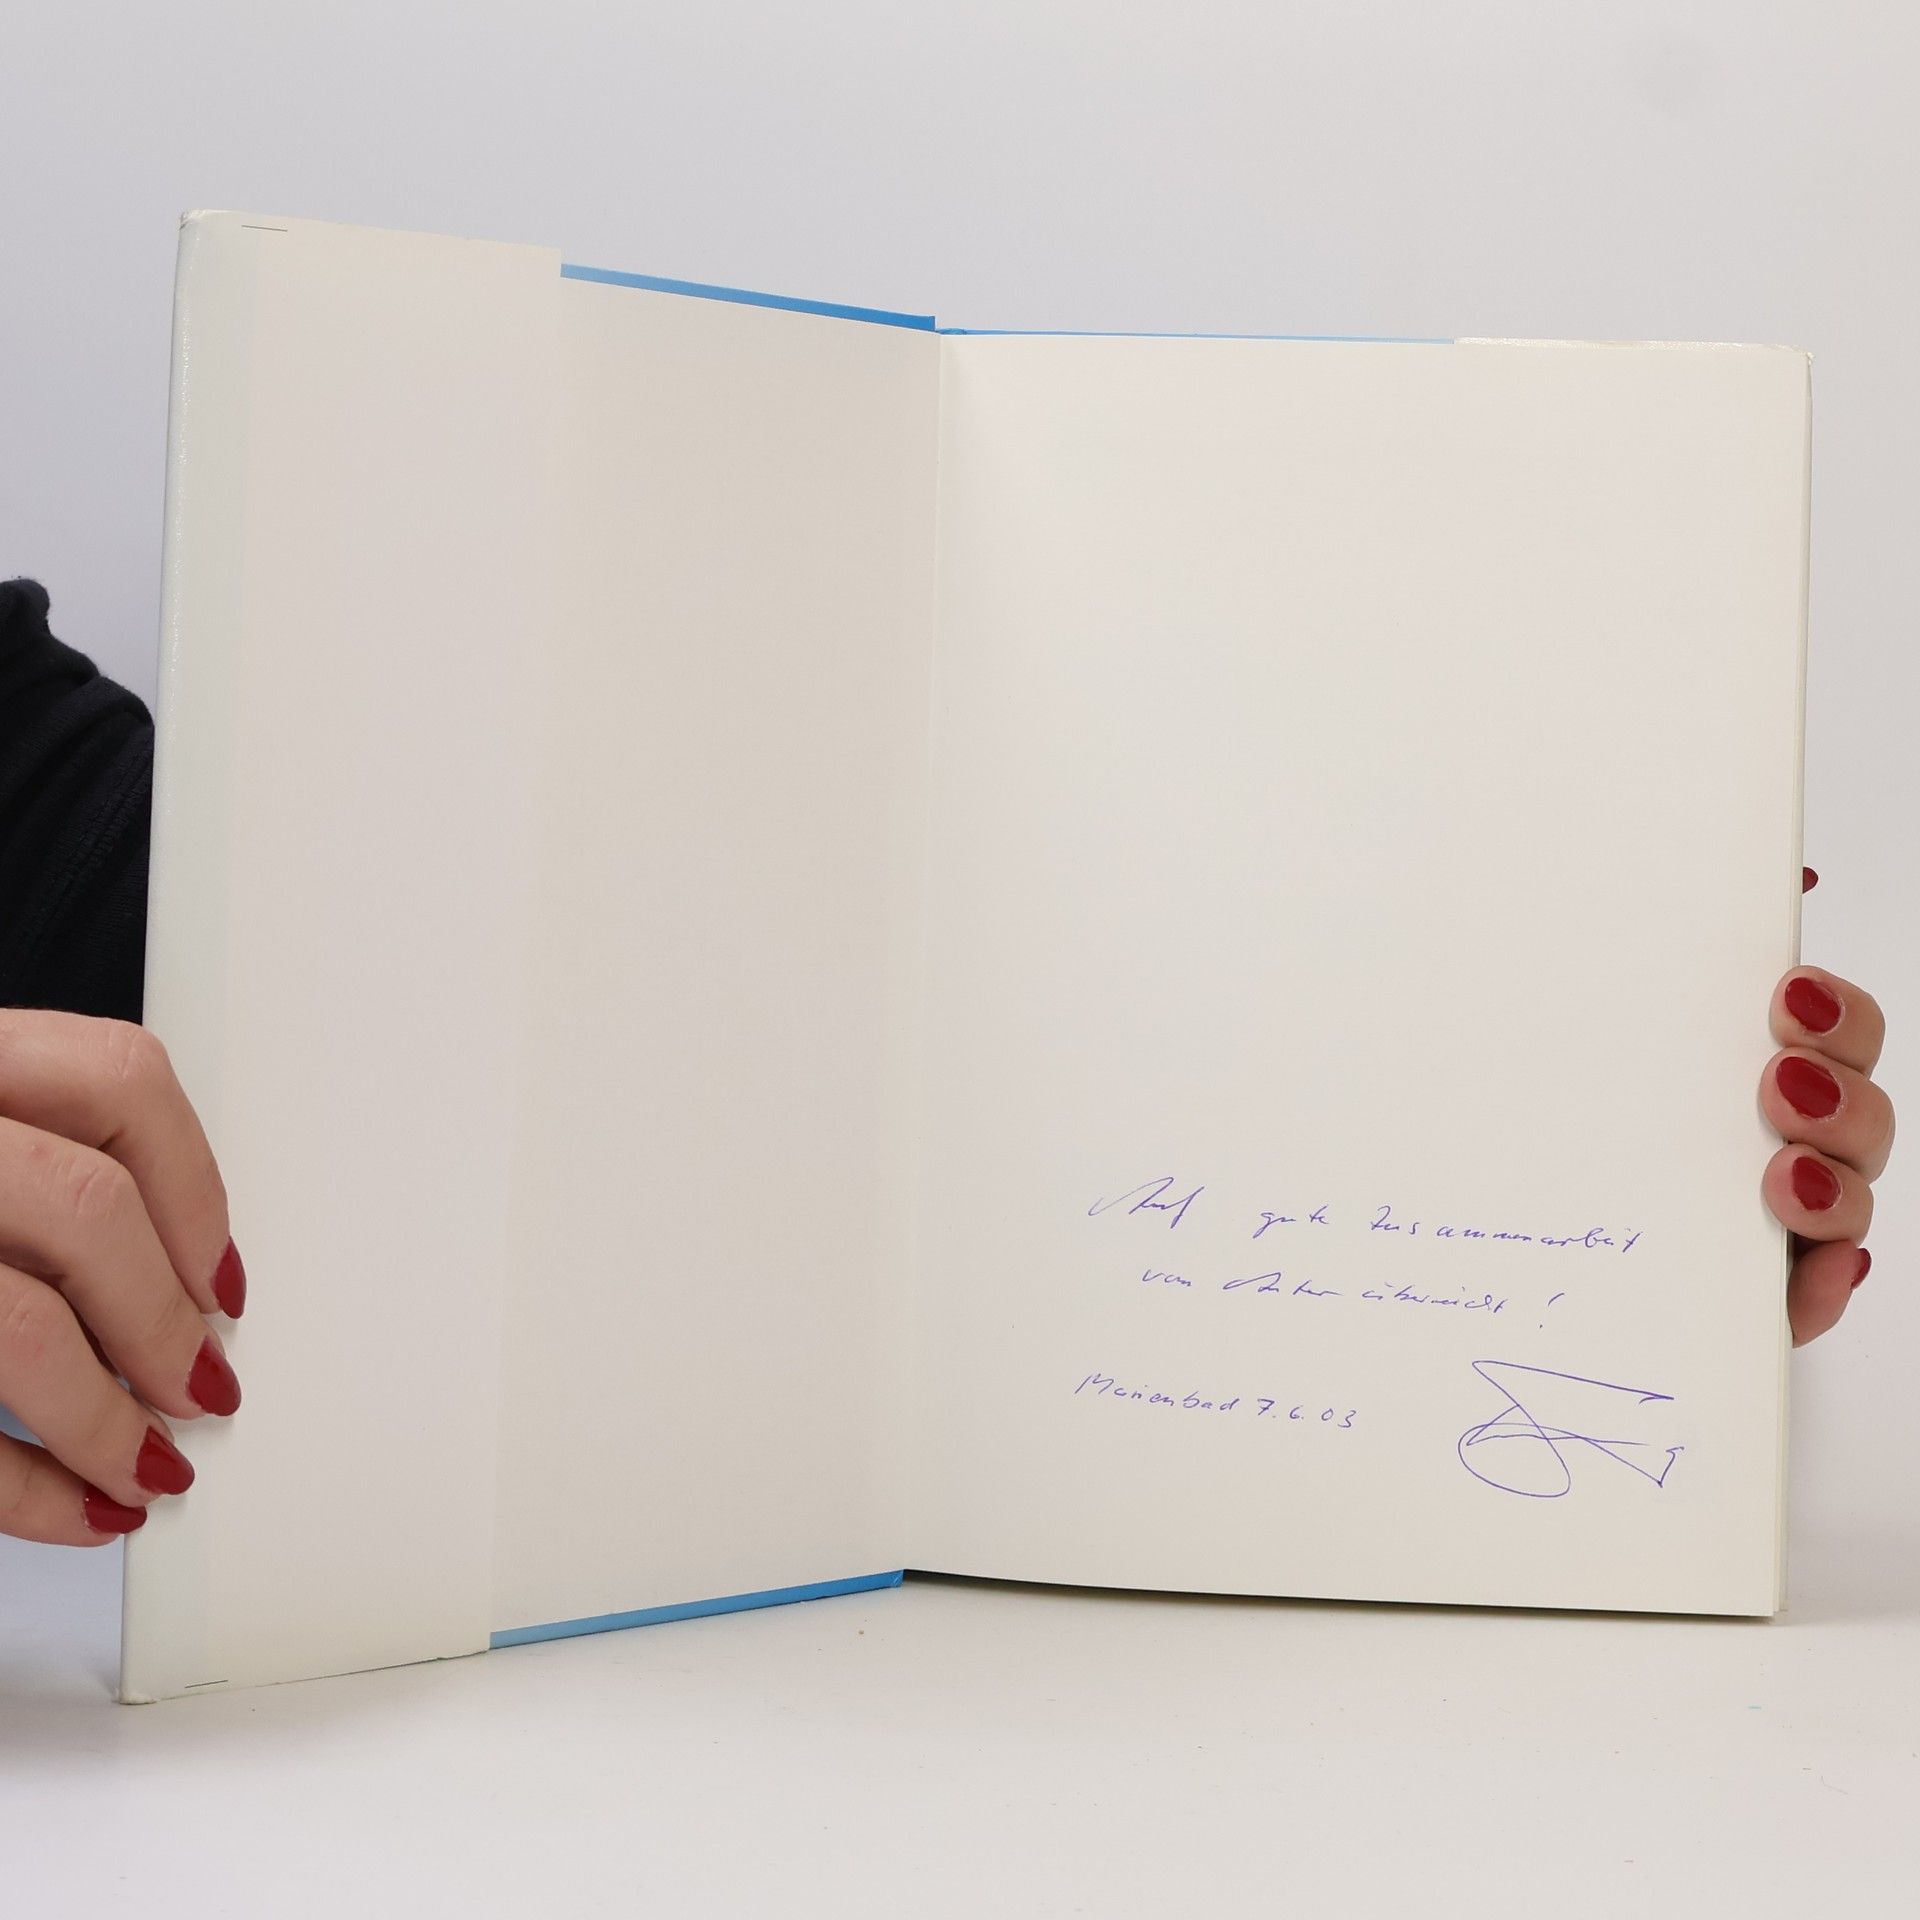 Auf gute Zusammenarbeit
vom Autor überreicht!
Marienbad 7.6.03